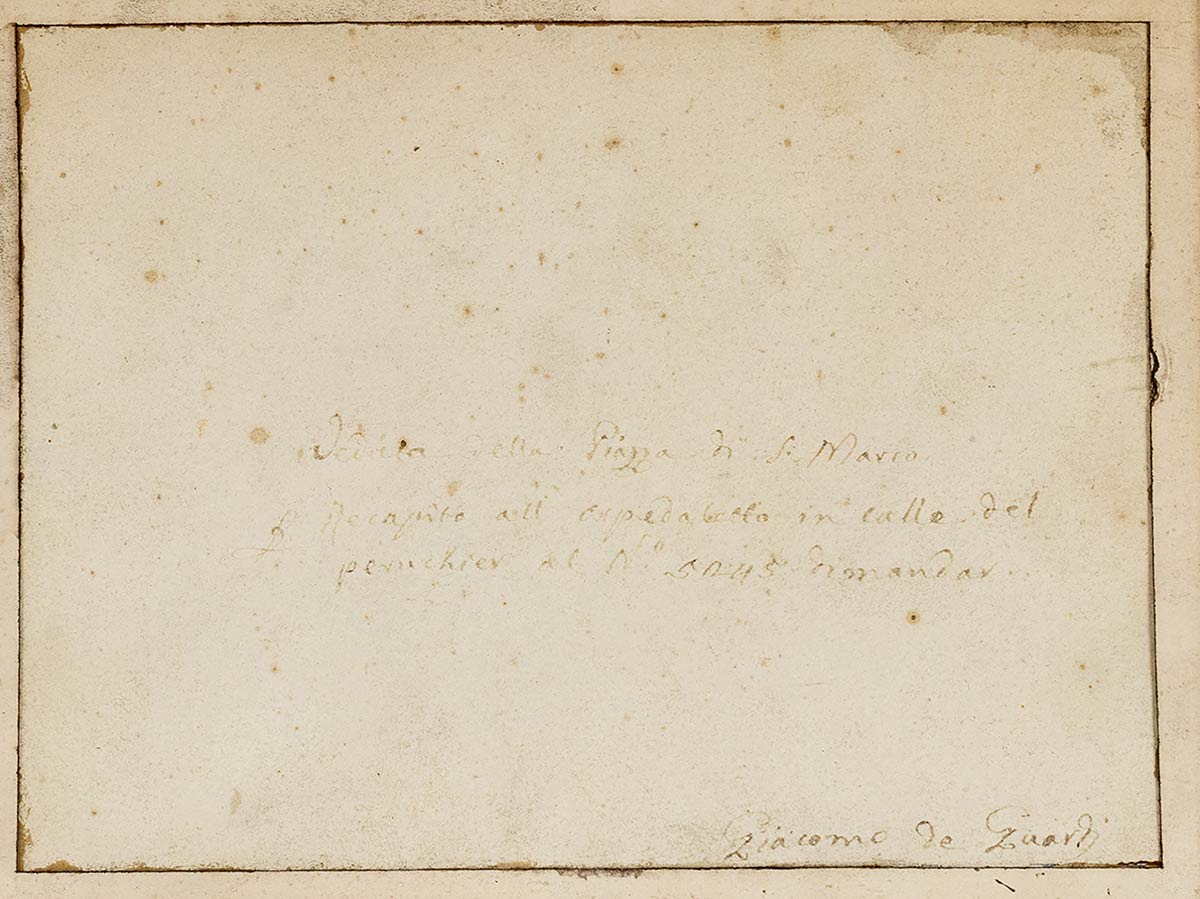 Veduta della Piazza di S. Marco
Recapito all ospedaletto in calle del
peruchier al N.º 5245 dimandar
Giacomo de Guardi